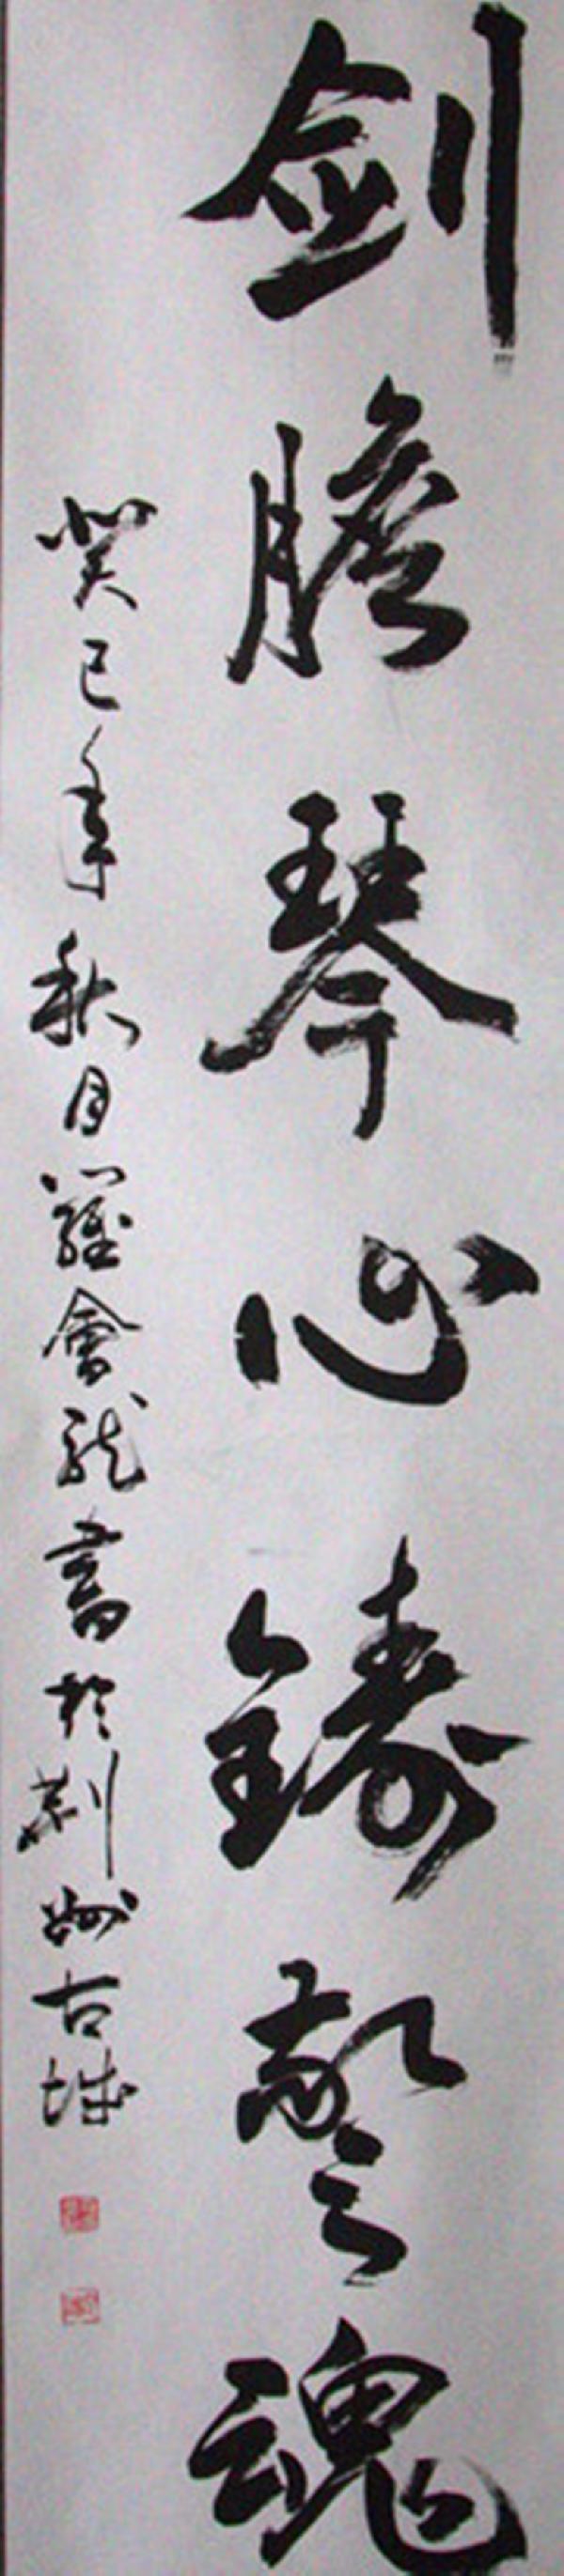 剑膽琴心鑄警魂
癸巳年秋月羅會龍書於荆州古城